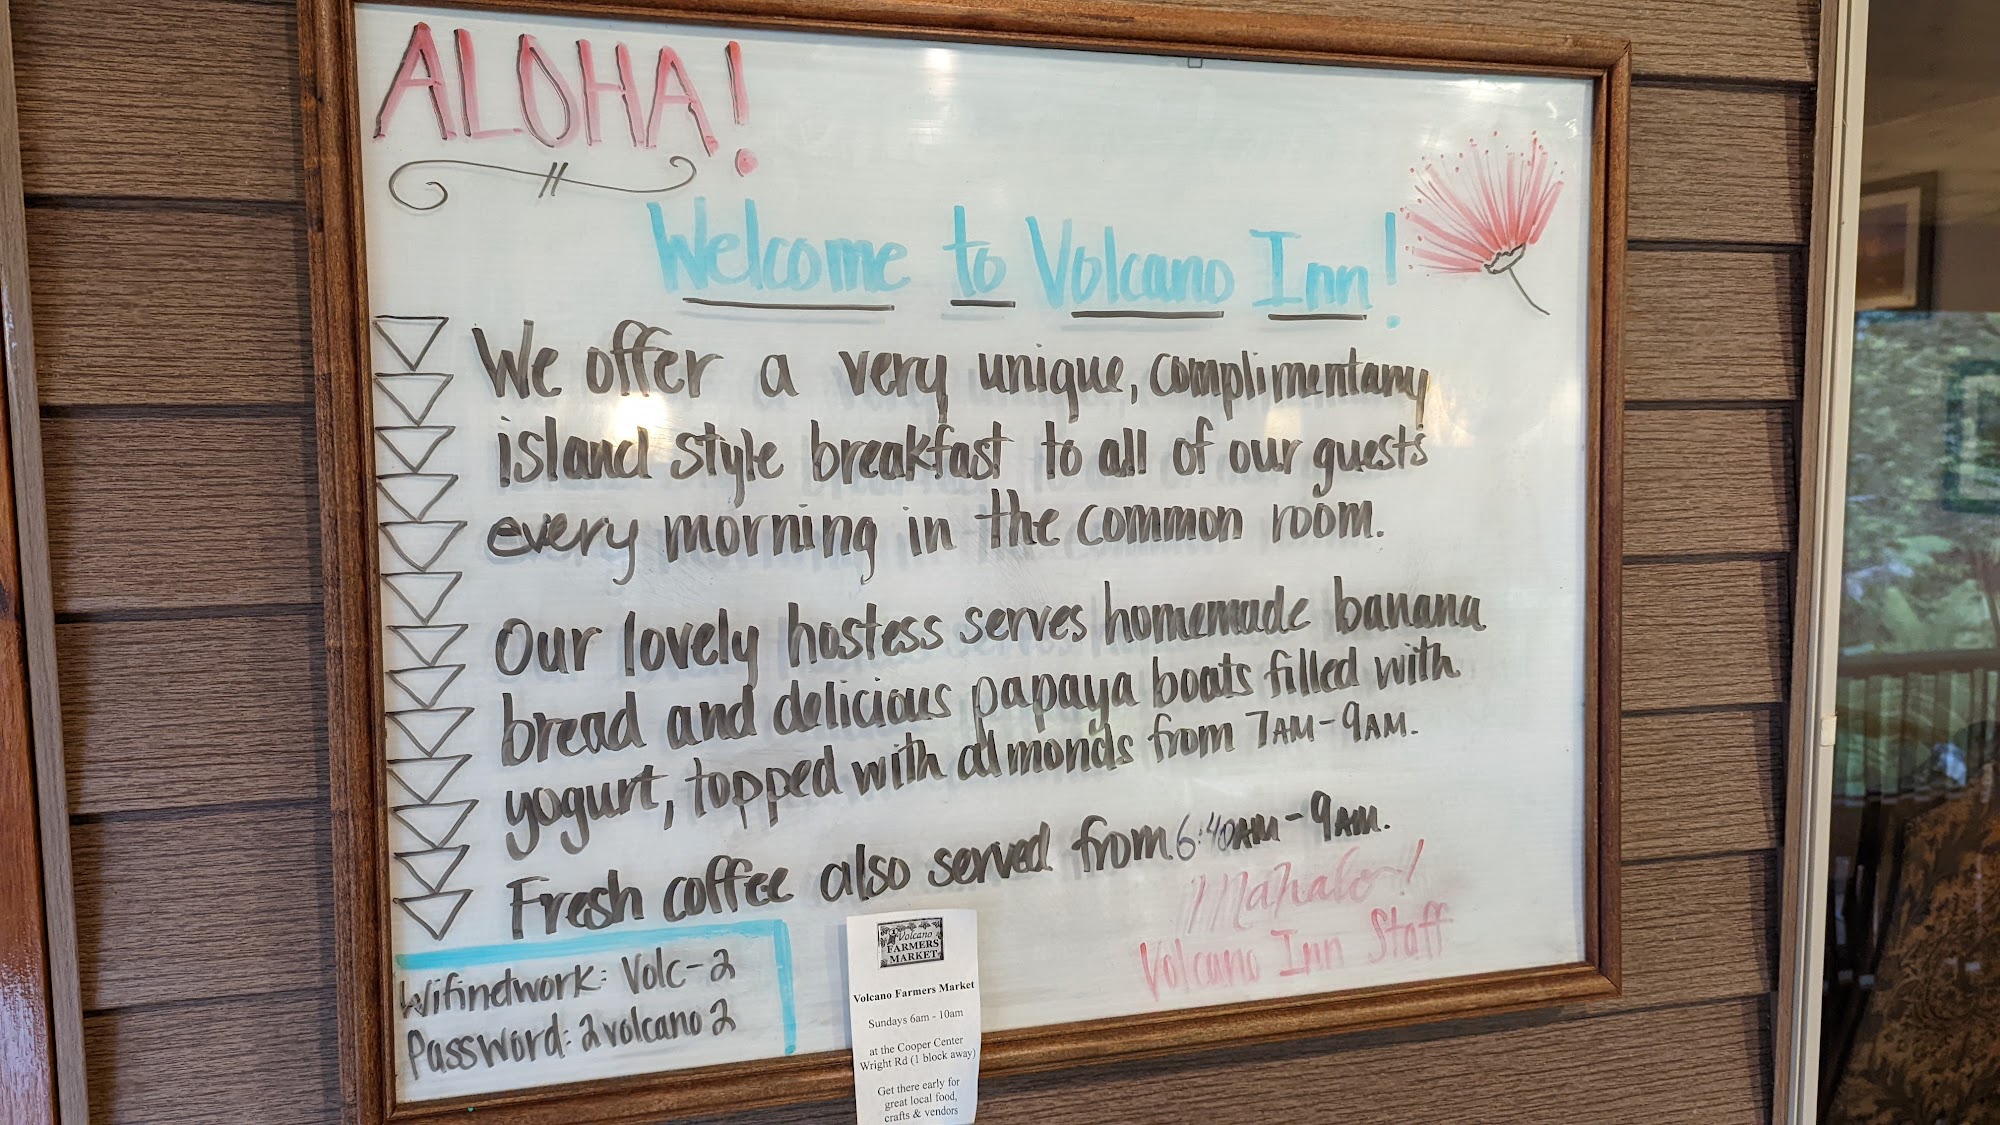 ALOHA!
Welcome to Volcano Inn!
We offer a very unique, complimentary
island style breakfast to all of our guests
every morning in the common room.
Our lovely hostess serves homemade banana
bread and delicious papaya boats filled with
yogurt, topped with almonds from 7AM-9AM.
Fresh coffee also served from 6:40AM-9AM.
Mahalo!
Volcano Inn Staff
Wifinetwork: Volc-2
Password: 2volcano2
Volcano
FARMERS
MARKET
Volcano Farmers Market
Sundays 6am - 10am
at the Cooper Center
Wright Rd (1 block away)
Get there early for
great local food,
crafts & vendors